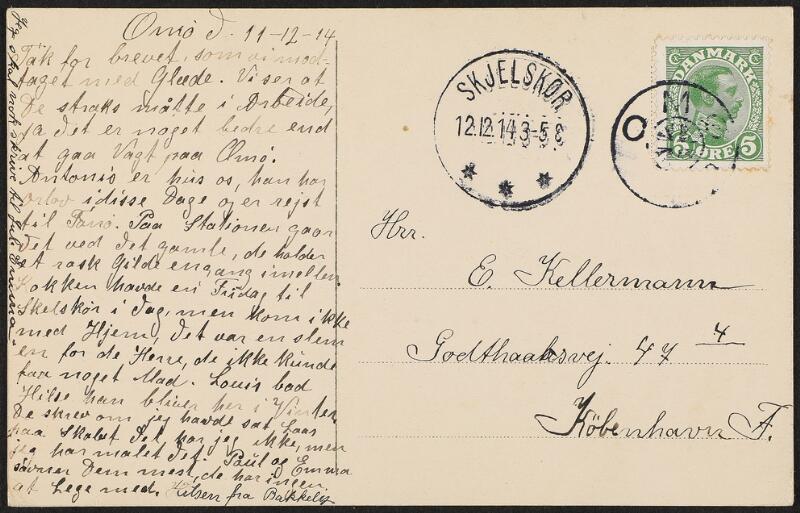 Omø d. 11-12-14
Tak for brevet, som vi mod-
taget med Glæde. Vi ser at
De straks måtte i Arbeide,
ja det er noget bedre end
at gaa Vagt paa Omø.
Antonis er hus os, han har
orlov i disse Dage og er rejst
til Fanø. Paa Stationen gaar
det ved det gamle, de holder
et rask Gilde engang imellem
Kokken havde en Fridag til
Skelskör i dag, men kom ikke
med Hjem, det var en slem
en for de Herre, de ikke kunde
faa noget Mad. Louis bad
Hilse han bliver her i Vinter
De skrev om jeg havde sat Laas
paa Skabet det har jeg ikke, men
jeg har malet det. Paul og Emma
savner Dem mest, de har ingen
at Lege med. Hilsen fra Bakkely
Jeg skal nok skrive til Jul Emma.
SKJELSKØR
12.12.14 3-5 E
DANMARK
5 ØRE 5
OMØ
Hrr.
E. Kellermann
Godthaabsvej. 47 4
København F.